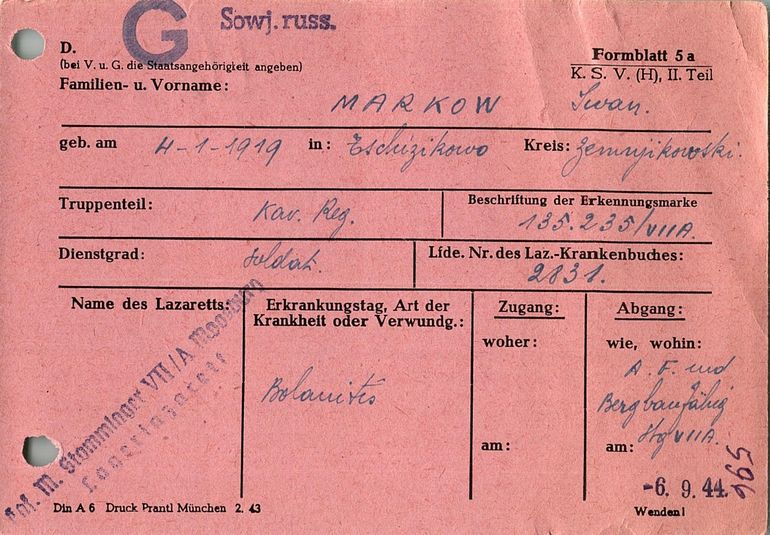 G Sowj. russ.
D.
(bei V. u. G. die Staatsangehörigkeit angeben)
Formblatt 5 a
K. S. V. (H), II. Teil
Familien- u. Vorname:
MARKOW Iwan.
geb. am 4-1-1919 in: Tschizikowo Kreis: Zemnjikowski.
Truppenteil: Kav. Reg.
Beschriftung der Erkennungsmarke
135.235/VIIA.
Dienstgrad: Soldat.
Lfde. Nr. des Laz.-Krankenbuches:
2831.
Name des Lazaretts:
Kgf. M. Stammlager VII/A Moosburg
Lagerlazarett
Erkrankungstag, Art der
Krankheit oder Verwundg.:
Bolanites
Zugang:
woher:
am:
Abgang:
wie, wohin:
A. F. und
Bergbaufähig
am: Stg VIIA.
-6. 9. 44.
596
Din A 6 Druck Prantl München 2. 43
Wenden!